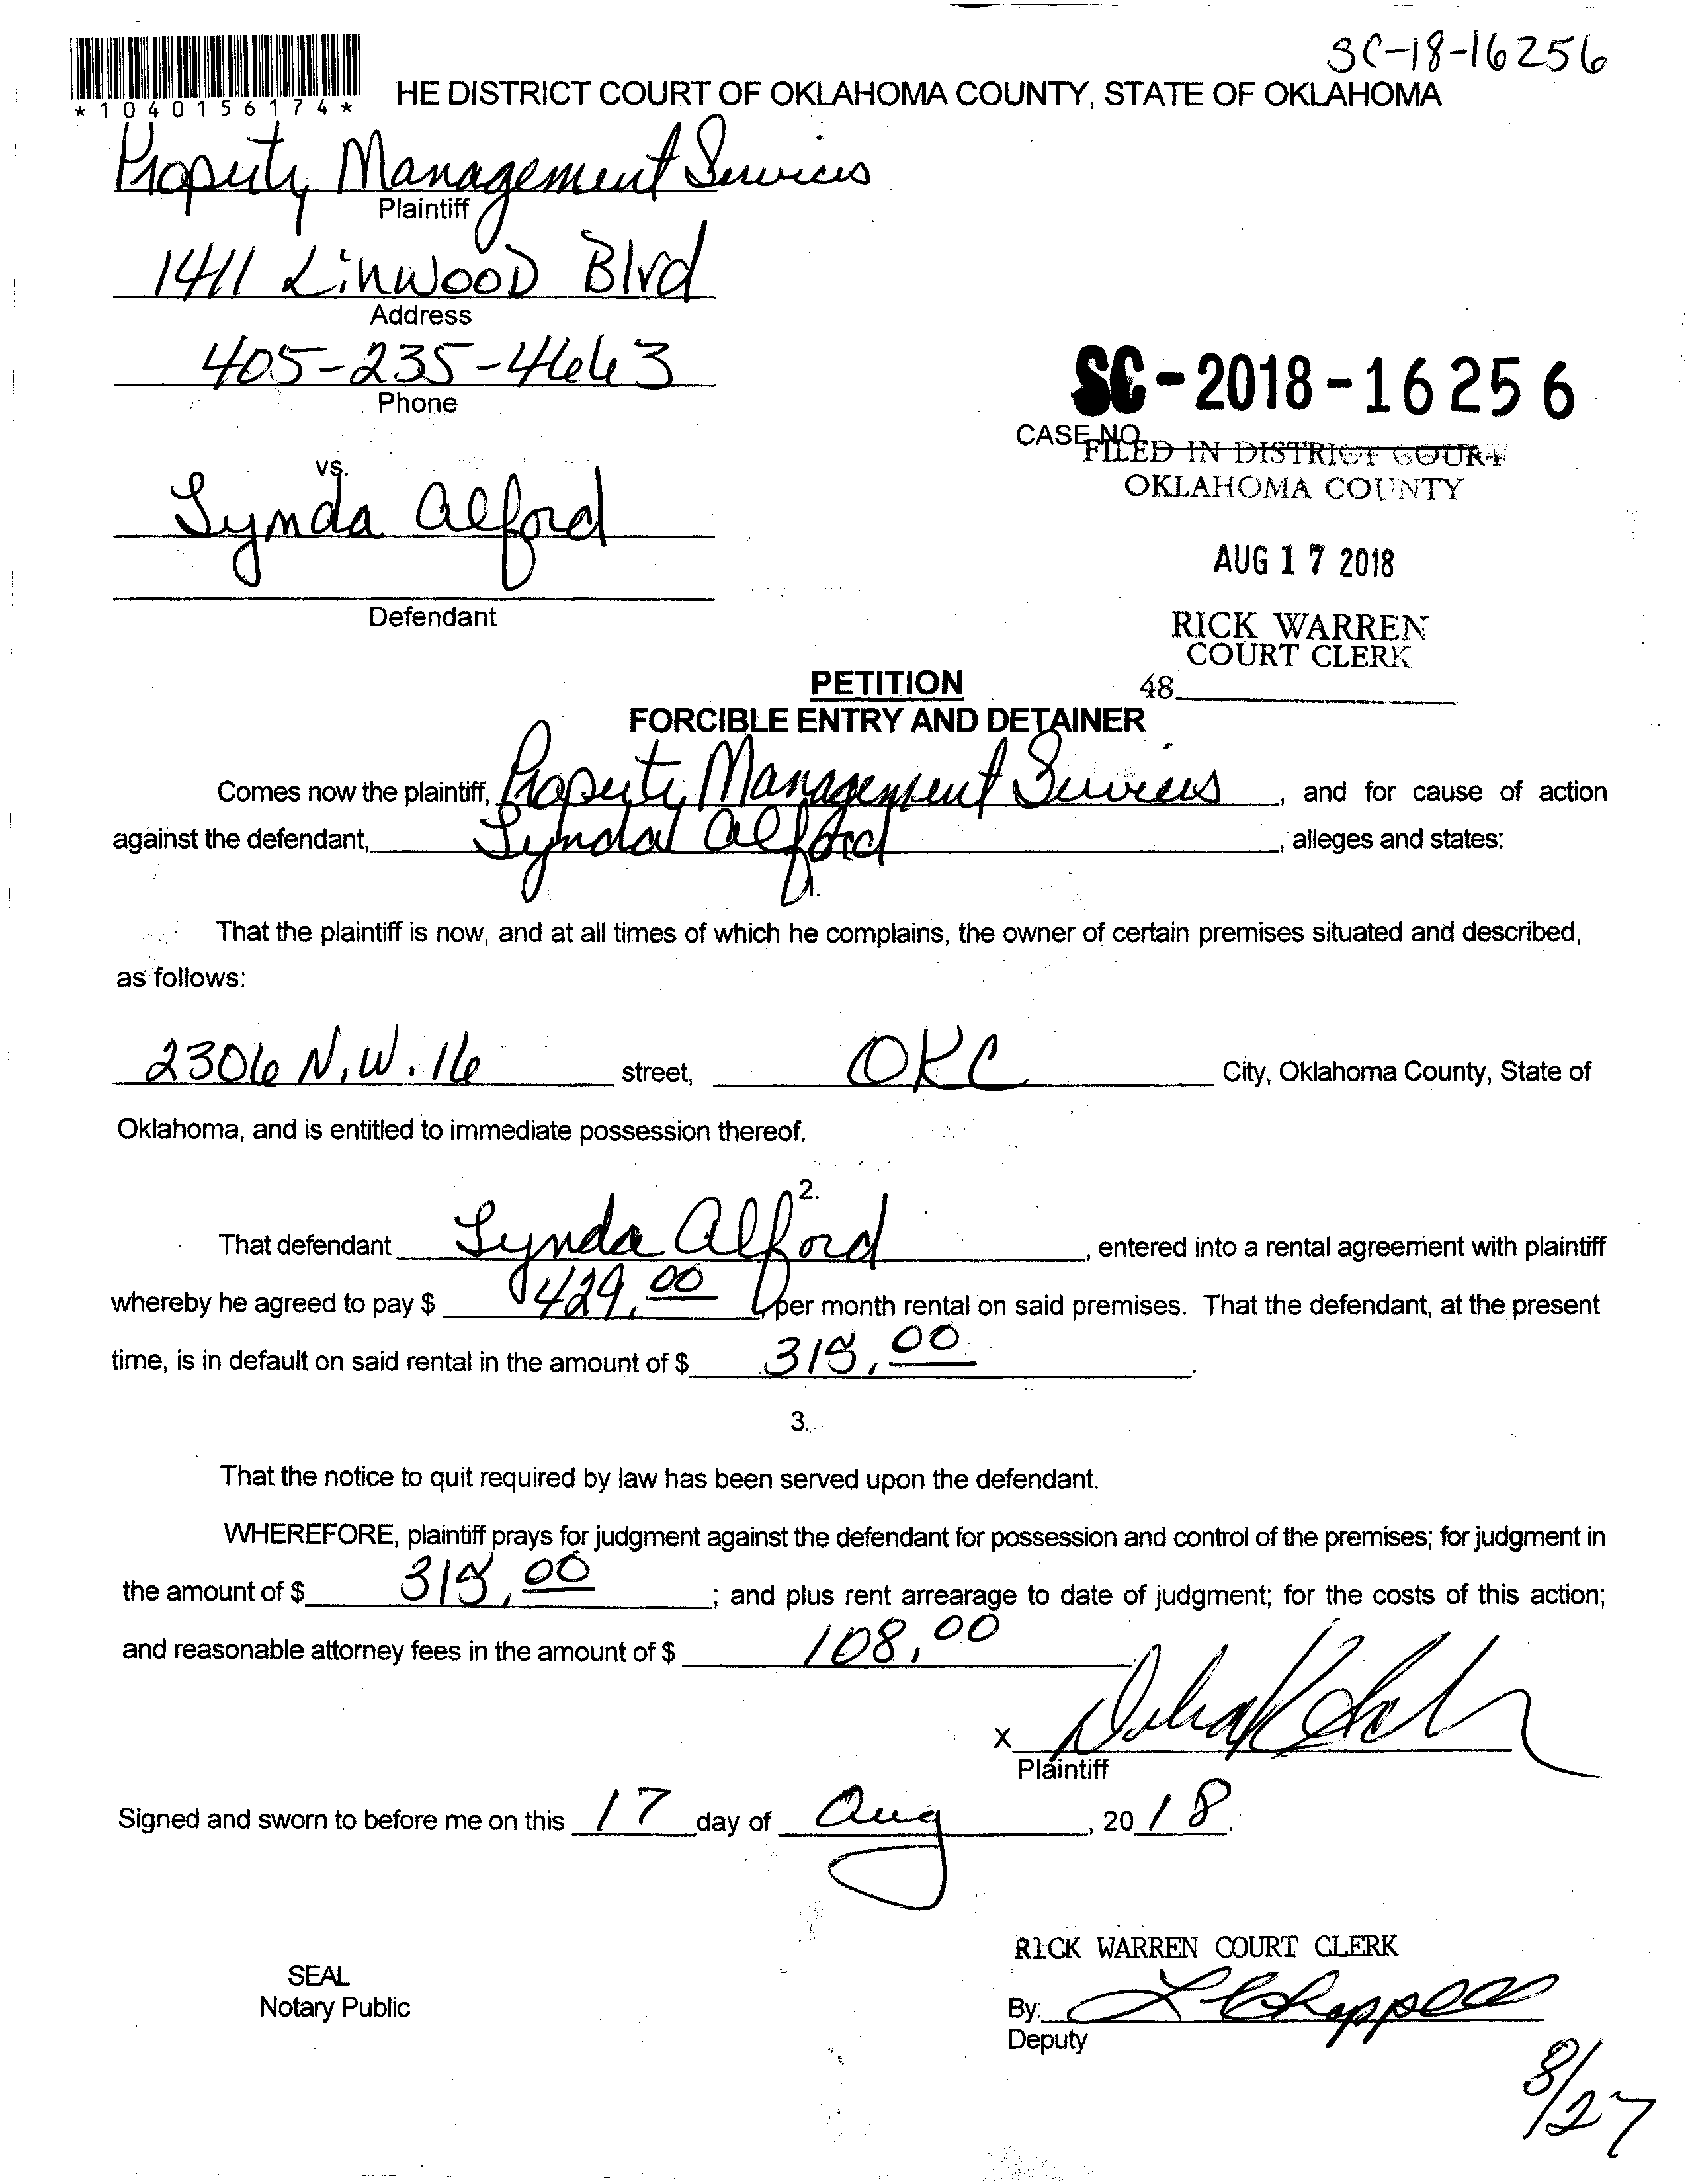 SC-18-16256
*1040156174*
HE DISTRICT COURT OF OKLAHOMA COUNTY, STATE OF OKLAHOMA
Property Management Services
Plaintiff
1411 Linwood Blvd
Address
405-235-4663
Phone
SC-2018-16256
CASE NO.
FILED IN DISTRICT COURT
OKLAHOMA COUNTY
vs.
Lynda Alford
AUG 17 2018
Defendant
RICK WARREN
COURT CLERK
48
PETITION
FORCIBLE ENTRY AND DETAINER
Comes now the plaintiff, Property Management Services, and for cause of action
against the defendant, Lynda Alford, alleges and states:
1.
That the plaintiff is now, and at all times of which he complains, the owner of certain premises situated and described,
as follows:
2306 N.W. 16 street, OKC City, Oklahoma County, State of
Oklahoma, and is entitled to immediate possession thereof.
2.
That defendant Lynda Alford, entered into a rental agreement with plaintiff
whereby he agreed to pay $ 429.00 per month rental on said premises. That the defendant, at the present
time, is in default on said rental in the amount of $ .
3.
That the notice to quit required by law has been served upon the defendant.
WHEREFORE, plaintiff prays for judgment against the defendant for possession and control of the premises; for judgment in
the amount of $ ; and plus rent arrearage to date of judgment; for the costs of this action;
and reasonable attorney fees in the amount of $ 108.00
X
Plaintiff
Signed and sworn to before me on this 17 day of Aug, 2018.
RICK WARREN COURT CLERK
SEAL
Notary Public
By: L Chappell
Deputy
8/27